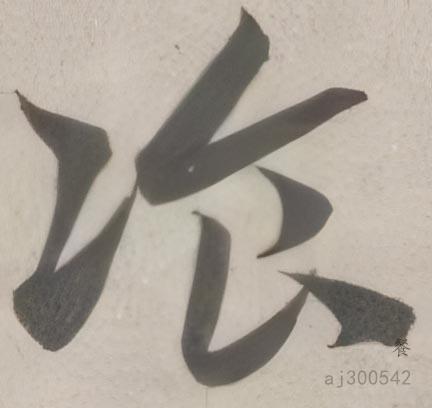 飡
餐
aj300542